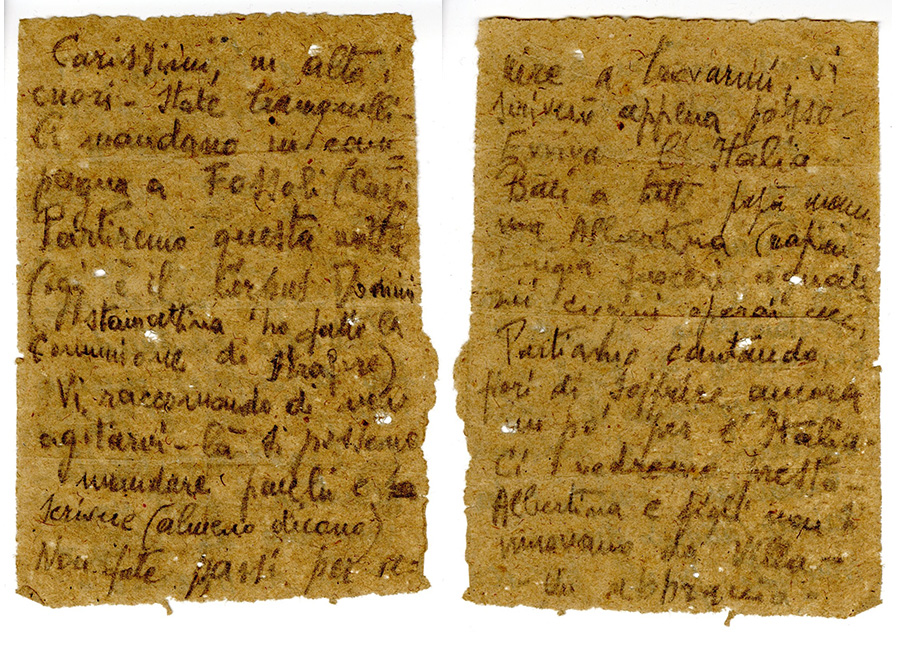 Carissimi, in alto i
cuori - State tranquilli -
Ci mandano in cam=
pagna a Fossoli (Carpi
Partiremo questa notte
(oggi è il Corpus Domini
stamattina ho fatto la
Comunione di straforo)
Vi raccomando di non
agitarvi - Là si possono
mandare pacchi e
scrivere (almeno dicono)
Non fate passi per ve=
nire a trovarmi, vi
scriverò appena posso -
Evviva l'Italia -
Baci a tutti papà mam
ma Albertina
suoceri
cugini operai ecc,
Partiamo cantando,
fieri di soffrire ancora
un po' per l'Italia -
Ci vedremo presto -
Albertina e figli non si
muovano da Villa -
Un abbraccio -